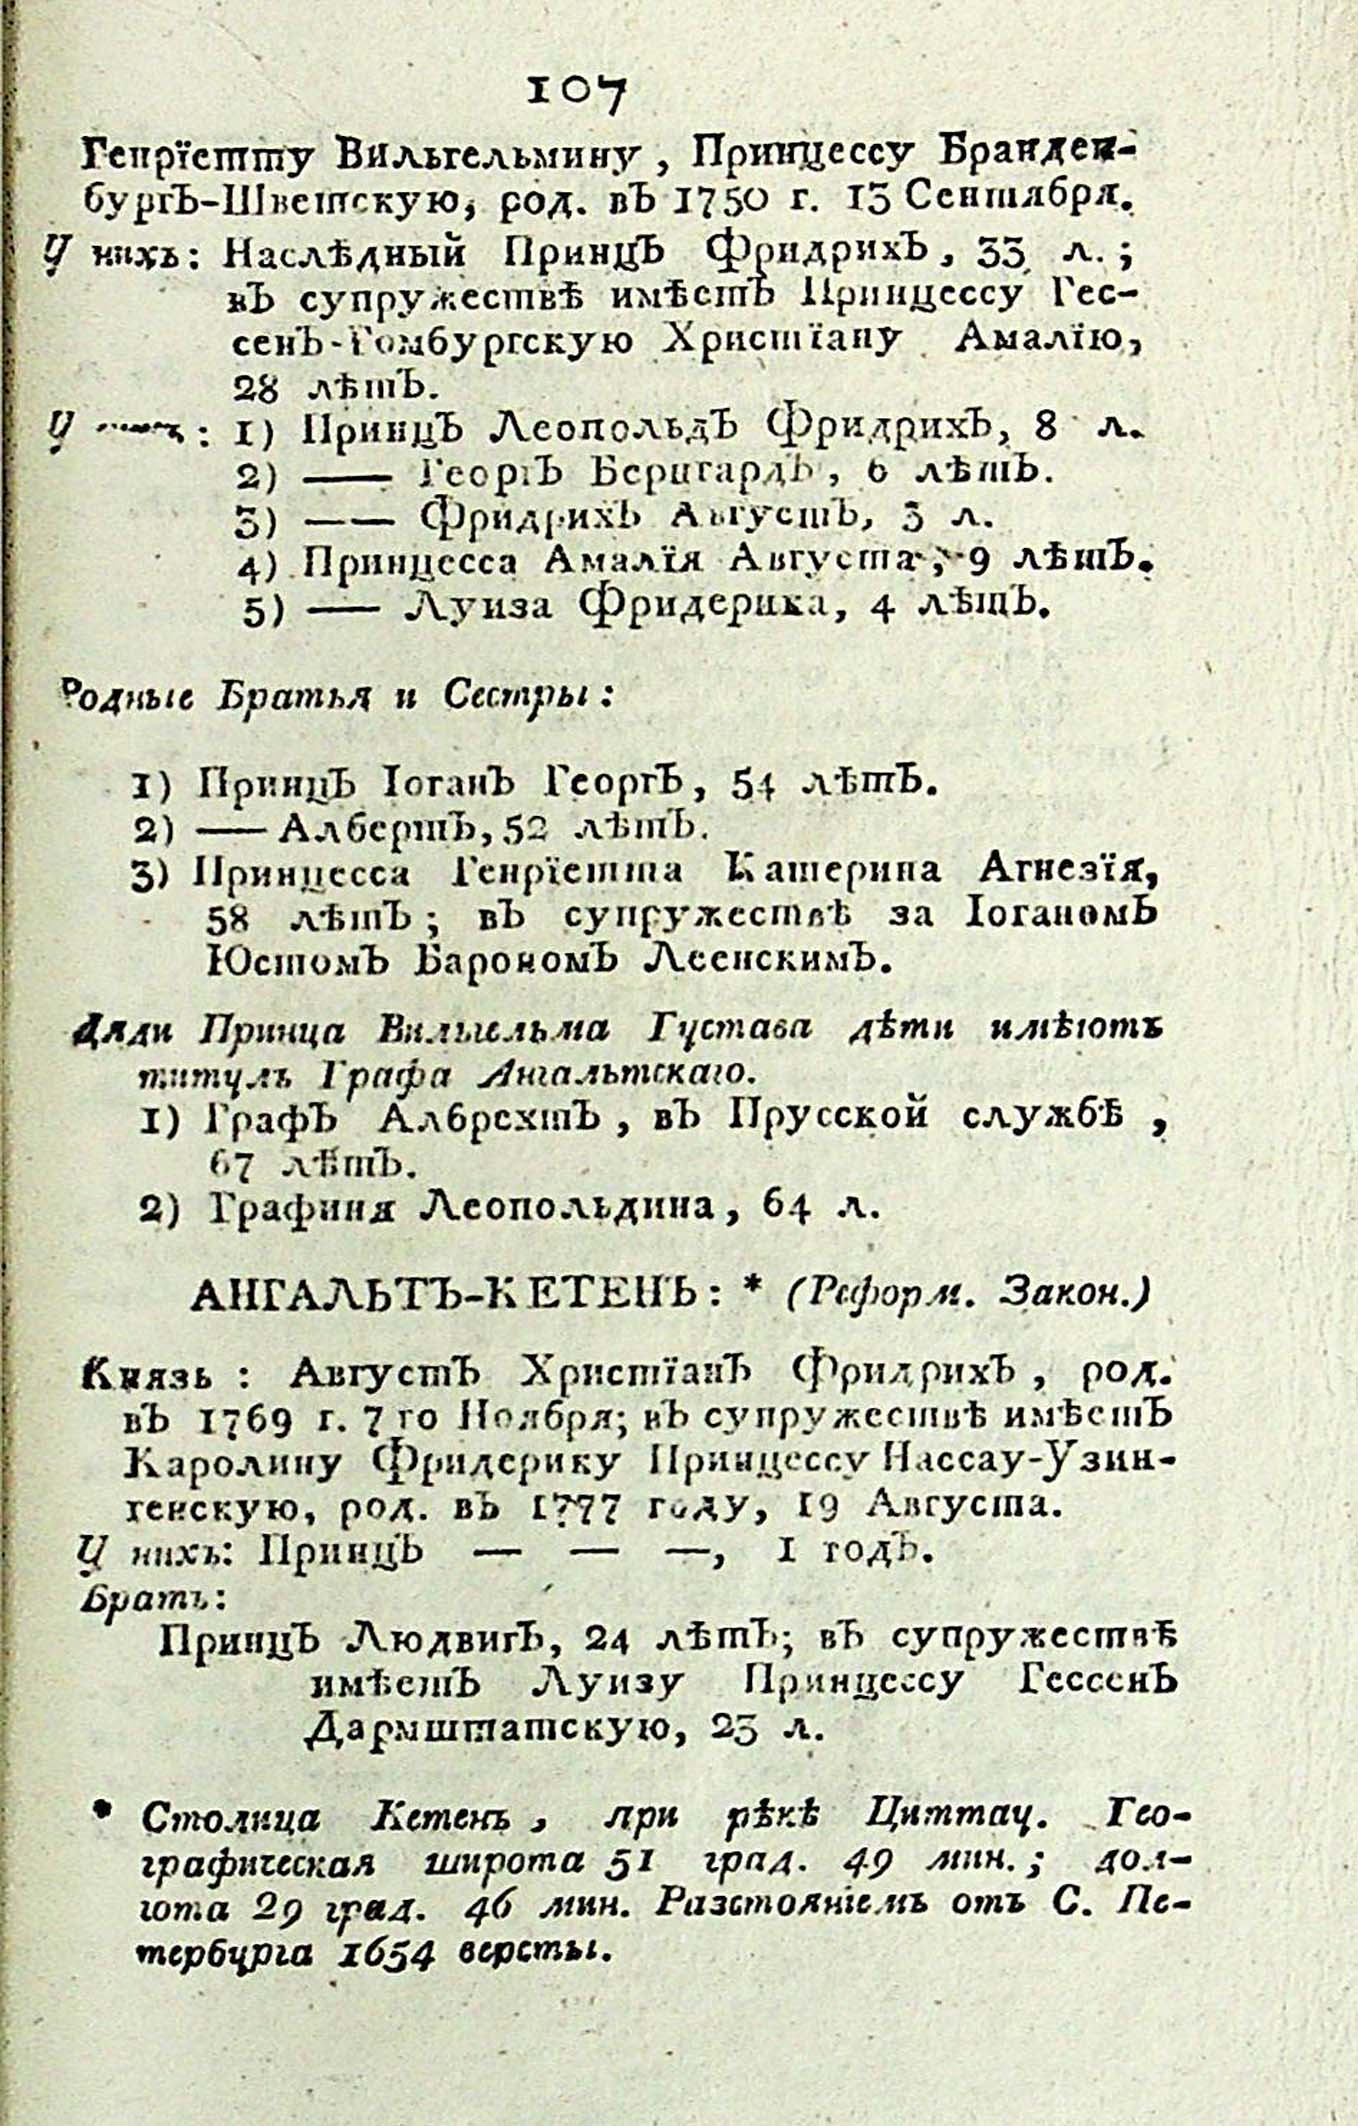 107
Генрїетту Вильгельмину, Принцессу Бранден-
бургъ-Шветскую, род. въ 1750 г. 13 Сентября.
У нихъ: Наслѣдный Принцъ Фридрихъ, 33 л.;
въ супружествѣ имѣетъ Принцессу Гес-
сенъ-Гомбургскую Христїану Амалїю,
28 лѣтъ.
У нихъ: 1) Принцъ Леопольдъ Фридрихъ, 8 л.
2) —— Георгъ Бернгардъ, 6 лѣтъ.
3) —— Фридрихъ Августъ, 3 л.
4) Принцесса Амалїя Августа, 9 лѣтъ.
5) —— Луиза Фридерика, 4 лѣтъ.
Родные Братья и Сестры:
1) Принцъ Іоганъ Георгъ, 54 лѣтъ.
2) —— Албертъ, 52 лѣтъ.
3) Принцесса Генрїетта Катерина Агнезїя,
58 лѣтъ; въ супружествѣ за Іоганомъ
Юстомъ Барономъ Леенскимъ.
Дяди Принца Вильгельма Густава дѣти имѣютъ
титулъ Графа Ангальтскаго.
1) Графъ Албрехтъ, въ Прусской службѣ,
67 лѣтъ.
2) Графиня Леопольдина, 64 л.
АНГАЛЬТЪ-КЕТЕНЪ: * (Реформ. Закон.)
Князь: Августъ Христїанъ Фридрихъ, род.
въ 1769 г. 7 го Ноября; въ супружествѣ имѣетъ
Каролину Фридерику Принцессу Нассау-Узин-
генскую, род. въ 1777 году, 19 Августа.
У нихъ: Принцъ — — —, 1 годъ.
Братъ:
Принцъ Людвигъ, 24 лѣтъ; въ супружествѣ
имѣетъ Луизу Принцессу Гессенъ
Дармштатскую, 23 л.
* Столица Кетенъ, при рѣкѣ Циттау. Гео-
графическая широта 51 град. 49 мин.; дол-
гота 29 град. 46 мин. Разстоянїемъ отъ С. Пе-
тербурга 1654 версты.